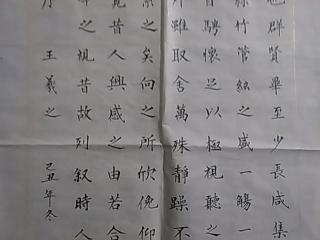 群賢畢至少長咸集
絲竹管絃之盛一觴一
騁懷足以極視聽之
雖取舍萬殊靜躁不
之矣向之所欣俛仰
覽昔人興感之由若合
之視昔故列叙時人
王羲之 己丑年冬